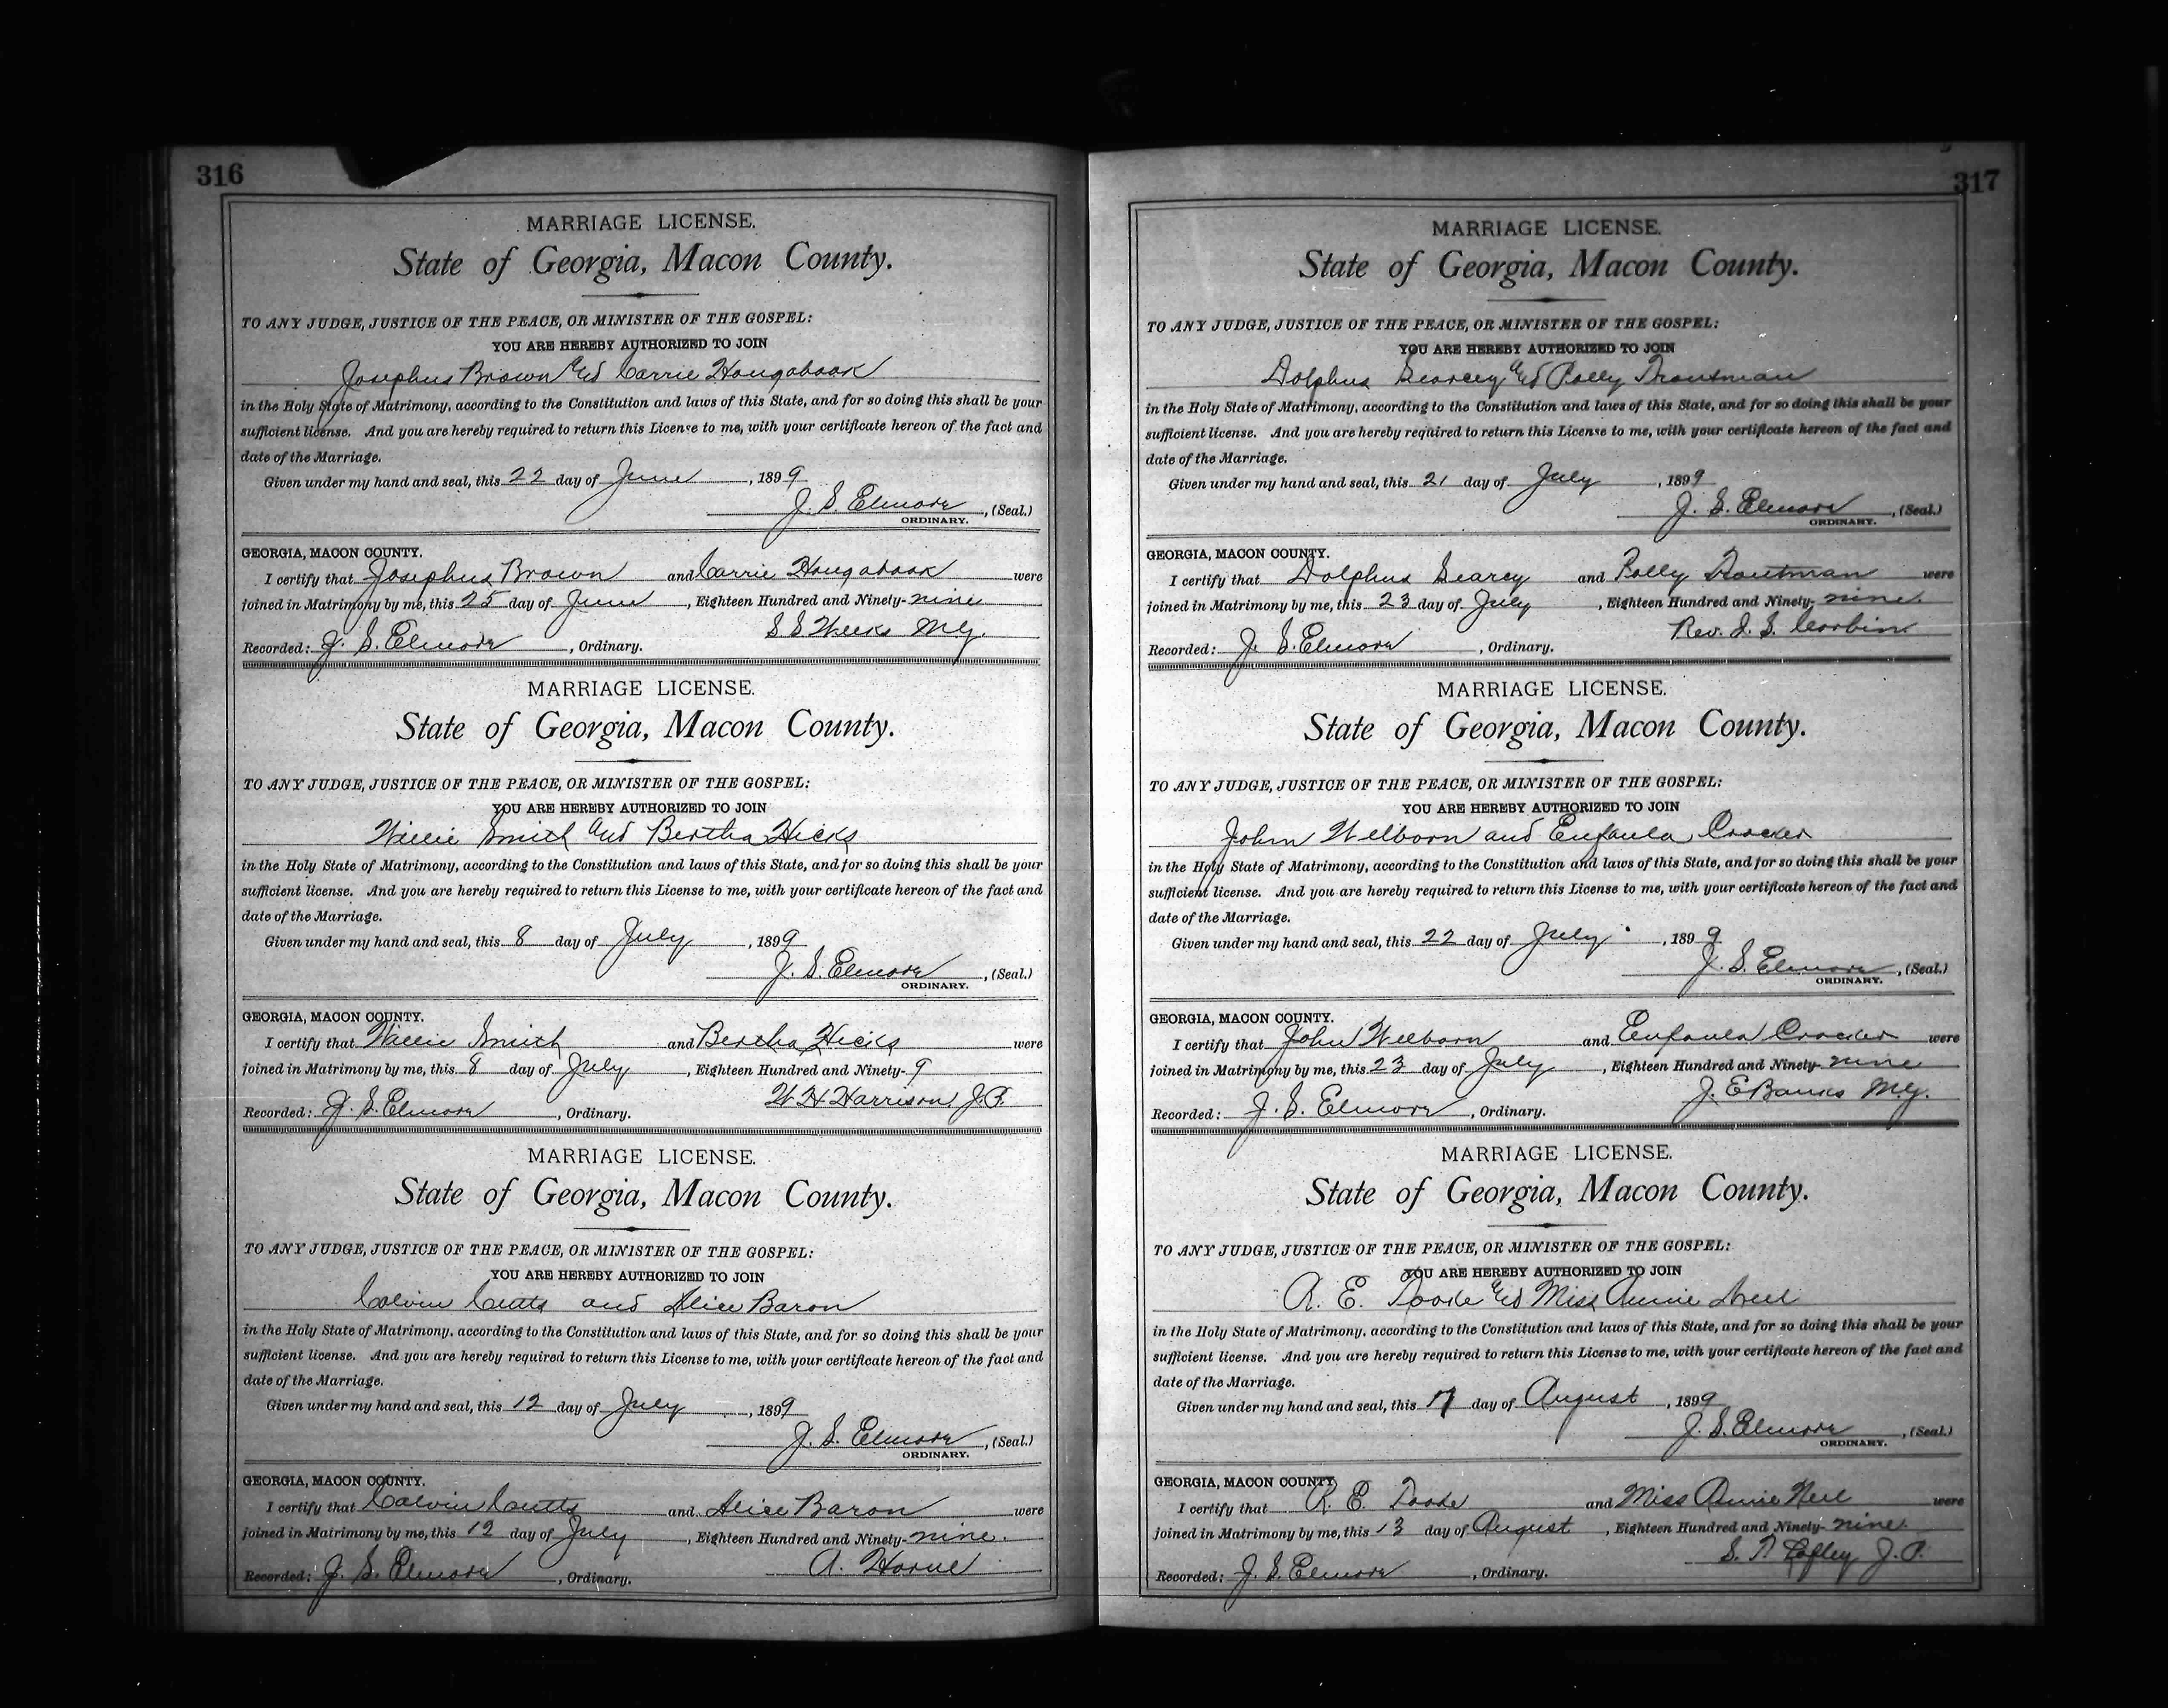 316
MARRIAGE LICENSE.
State of Georgia, Macon County.
TO ANY JUDGE, JUSTICE OF THE PEACE, OR MINISTER OF THE GOSPEL:
YOU ARE HEREBY AUTHORIZED TO JOIN
Josephus Brown and Carrie Hougabook
in the Holy State of Matrimony, according to the Constitution and laws of this State, and for so doing this shall be your
sufficient license. And you are hereby required to return this License to me, with your certificate hereon of the fact and
date of the Marriage.
Given under my hand and seal, this 22 day of June, 1899
J. S. Elmore, (Seal.)
ORDINARY.
GEORGIA, MACON COUNTY.
I certify that Josephus Brown and Carrie Hougabook were
joined in Matrimony by me, this 25 day of June, Eighteen Hundred and Ninety-nine
S S Weeks M.G.
Recorded: J. S. Elmore, Ordinary.
MARRIAGE LICENSE.
State of Georgia, Macon County.
TO ANY JUDGE, JUSTICE OF THE PEACE, OR MINISTER OF THE GOSPEL:
YOU ARE HEREBY AUTHORIZED TO JOIN
Willie Smith and Bertha Hicks
in the Holy State of Matrimony, according to the Constitution and laws of this State, and for so doing this shall be your
sufficient license. And you are hereby required to return this License to me, with your certificate hereon of the fact and
date of the Marriage.
Given under my hand and seal, this 8 day of July, 1899
J. S. Elmore, (Seal.)
ORDINARY.
GEORGIA, MACON COUNTY.
I certify that Willie Smith and Bertha Hicks were
joined in Matrimony by me, this 8 day of July, Eighteen Hundred and Ninety-9
W H Harrison J.P.
Recorded: J. S. Elmore, Ordinary.
MARRIAGE LICENSE.
State of Georgia, Macon County.
TO ANY JUDGE, JUSTICE OF THE PEACE, OR MINISTER OF THE GOSPEL:
YOU ARE HEREBY AUTHORIZED TO JOIN
Calvin Cutts and Alice Baron
in the Holy State of Matrimony, according to the Constitution and laws of this State, and for so doing this shall be your
sufficient license. And you are hereby required to return this License to me, with your certificate hereon of the fact and
date of the Marriage.
Given under my hand and seal, this 12 day of July, 1899
J. S. Elmore, (Seal.)
ORDINARY.
GEORGIA, MACON COUNTY.
I certify that Calvin Cutts and Alice Baron were
joined in Matrimony by me, this 12 day of July, Eighteen Hundred and Ninety-nine.
A. Horne
Recorded: J. S. Elmore, Ordinary.
317
MARRIAGE LICENSE.
State of Georgia, Macon County.
TO ANY JUDGE, JUSTICE OF THE PEACE, OR MINISTER OF THE GOSPEL:
YOU ARE HEREBY AUTHORIZED TO JOIN
Dolphus Searcey and Polly Troutman
in the Holy State of Matrimony, according to the Constitution and laws of this State, and for so doing this shall be your
sufficient license. And you are hereby required to return this License to me, with your certificate hereon of the fact and
date of the Marriage.
Given under my hand and seal, this 21 day of July, 1899
J. S. Elmore, (Seal.)
ORDINARY.
GEORGIA, MACON COUNTY.
I certify that Dolphus Searcy and Polly Troutman were
joined in Matrimony by me, this 23 day of July, Eighteen Hundred and Ninety-nine.
Rev. I. S. Corbin
Recorded: J. S. Elmore, Ordinary.
MARRIAGE LICENSE.
State of Georgia, Macon County.
TO ANY JUDGE, JUSTICE OF THE PEACE, OR MINISTER OF THE GOSPEL:
YOU ARE HEREBY AUTHORIZED TO JOIN
John Welborn and Eufaula Crocker
in the Holy State of Matrimony, according to the Constitution and laws of this State, and for so doing this shall be your
sufficient license. And you are hereby required to return this License to me, with your certificate hereon of the fact and
date of the Marriage.
Given under my hand and seal, this 22 day of July, 1899
J. S. Elmore, (Seal.)
ORDINARY.
GEORGIA, MACON COUNTY.
I certify that John Welborn and Eufaula Crocker were
joined in Matrimony by me, this 23 day of July, Eighteen Hundred and Ninety-nine
J. E Banks M.G.
Recorded: J. S. Elmore, Ordinary.
MARRIAGE LICENSE.
State of Georgia, Macon County.
TO ANY JUDGE, JUSTICE OF THE PEACE, OR MINISTER OF THE GOSPEL:
YOU ARE HEREBY AUTHORIZED TO JOIN
R. E. Toole and Miss Annie Neel
in the Holy State of Matrimony, according to the Constitution and laws of this State, and for so doing this shall be your
sufficient license. And you are hereby required to return this License to me, with your certificate hereon of the fact and
date of the Marriage.
Given under my hand and seal, this day of August, 1899
J. S. Elmore, (Seal.)
ORDINARY.
GEORGIA, MACON COUNTY.
I certify that R. E. Toole and Miss Annie Neel were
joined in Matrimony by me, this 13 day of August, Eighteen Hundred and Ninety-nine.
S. J. P.
Recorded: J. S. Elmore, Ordinary.